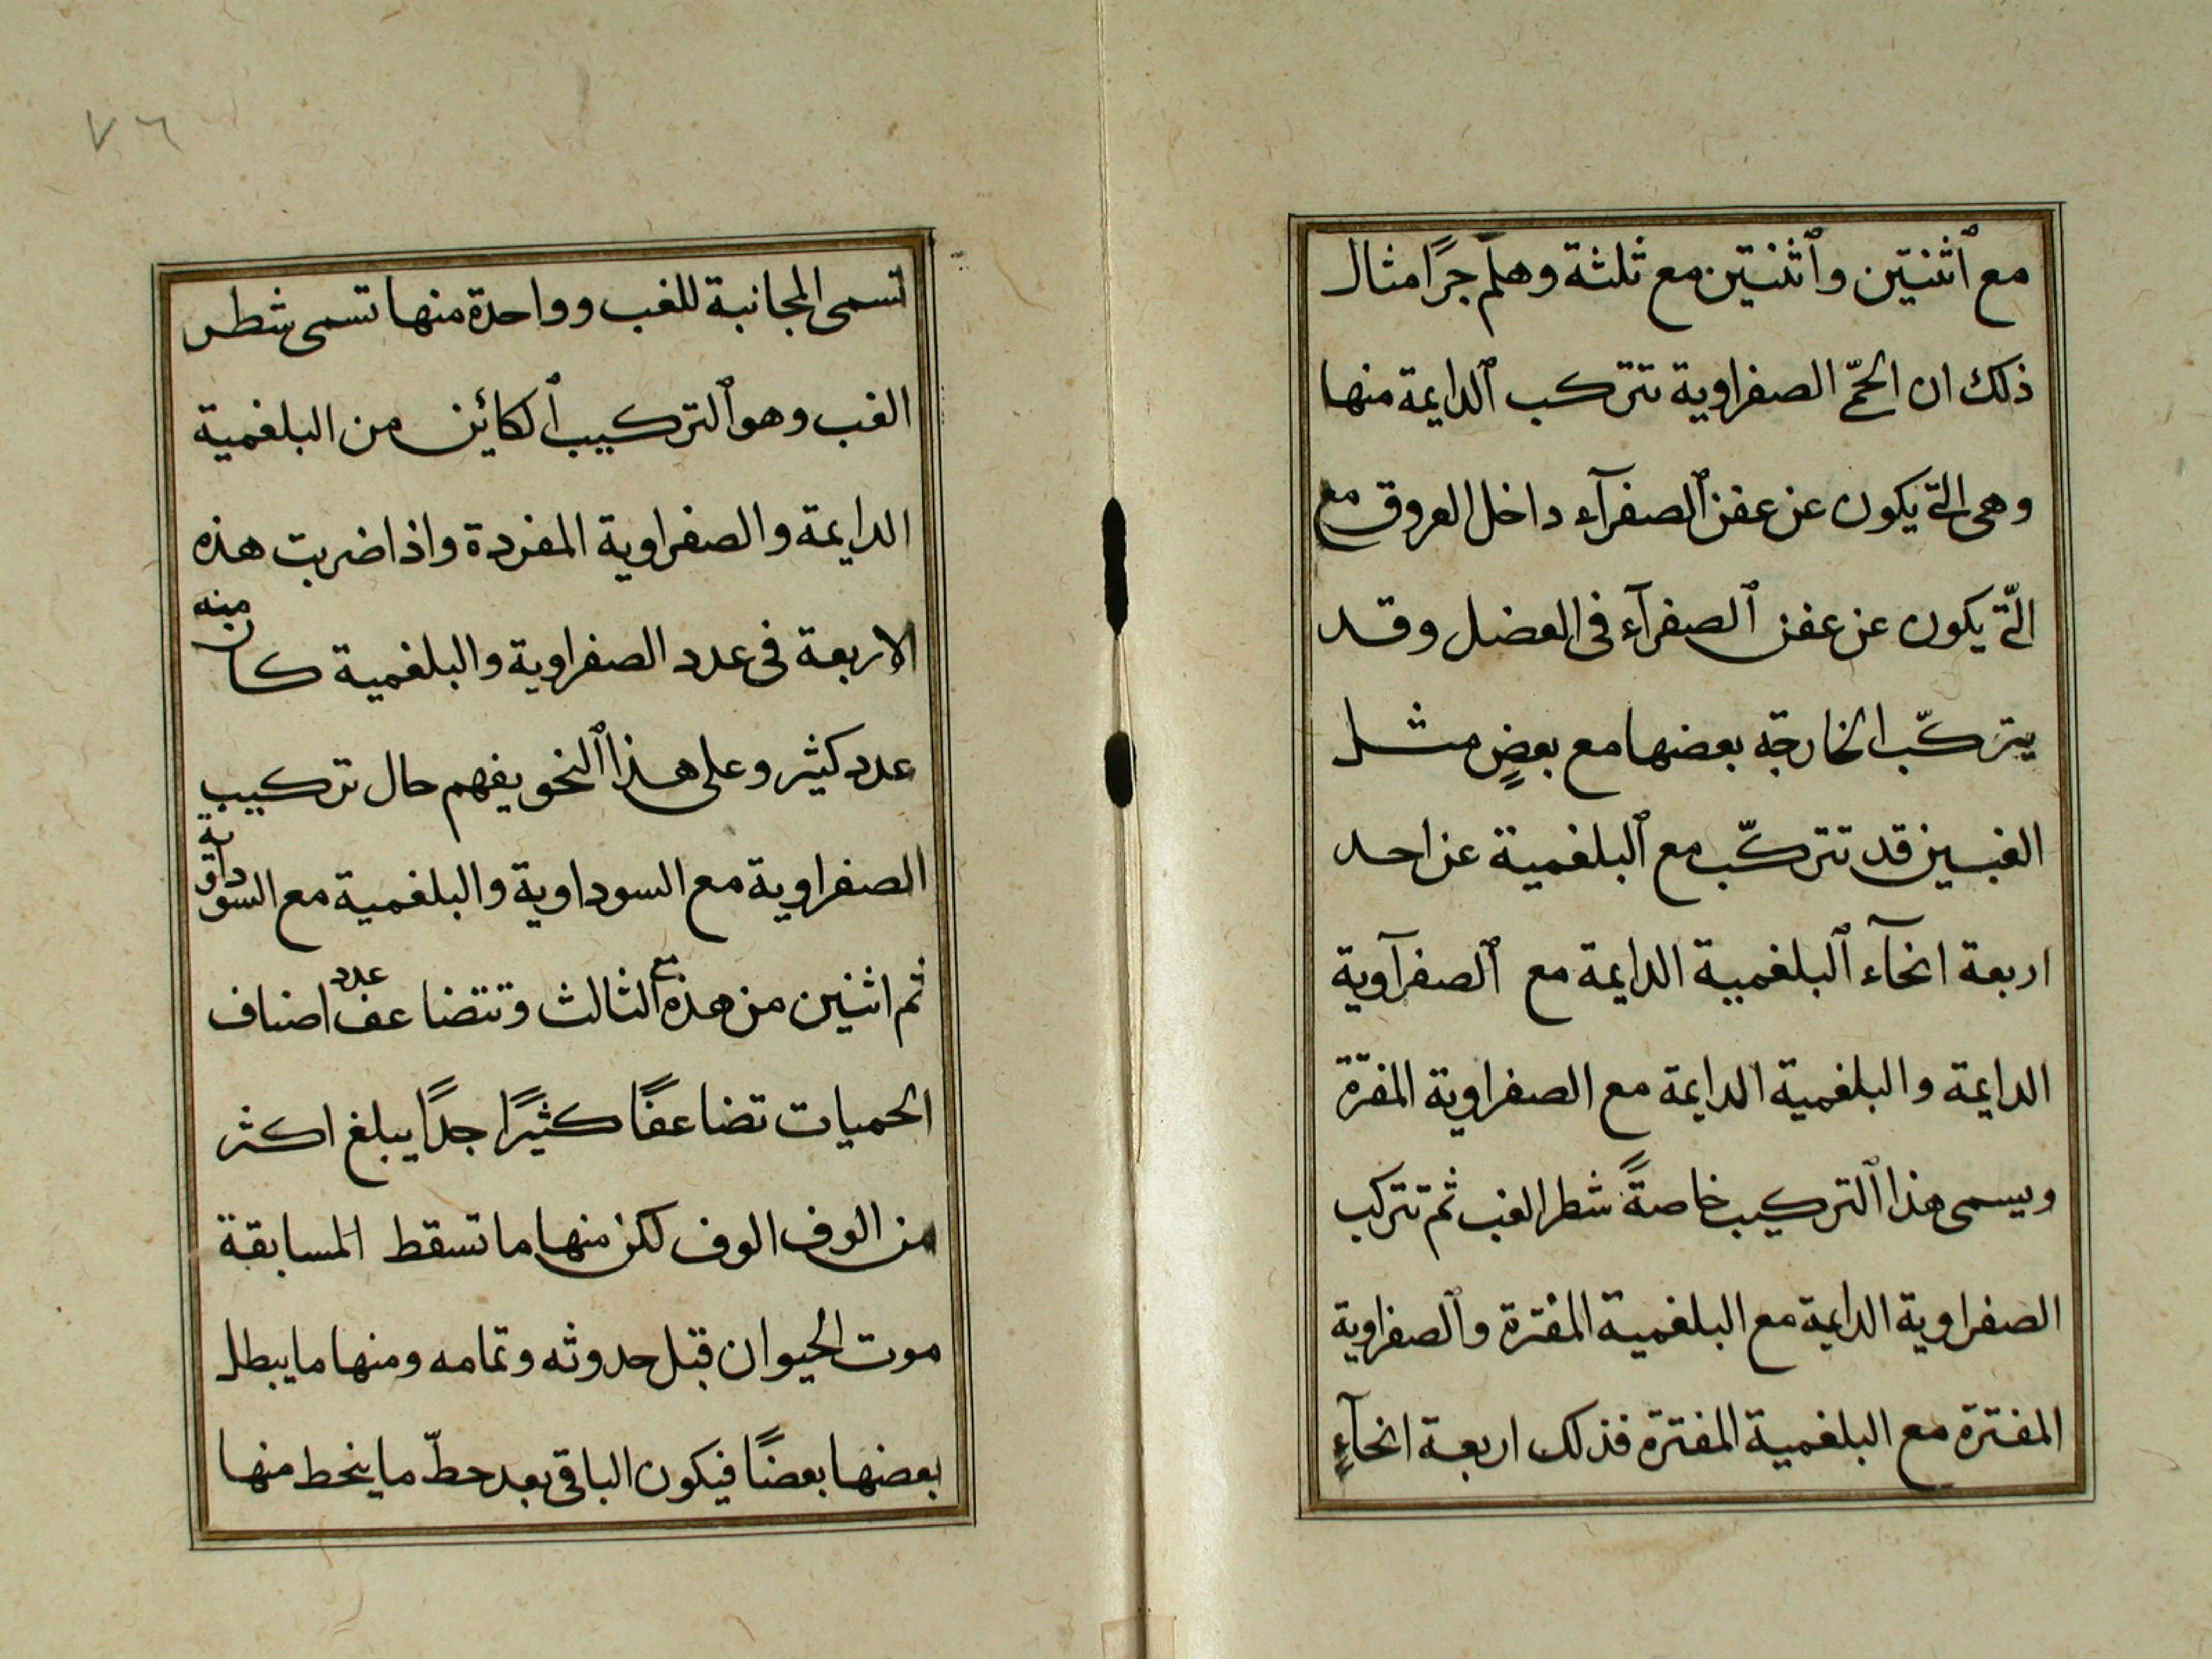 مع ٱثنتين وٱثنتين مع ثلثة وهلم جرًا مثال
ذلك ان الحمّى الصفراوية تتركب ٱلدايمة منها
وهى التى يكون عن عفن ٱلصفرآء داخل العروق مع
الّتى يكون عن عفن ٱلصفرآء فى العضل وقد
يتركّب الخارجة بعضها مع بعضٍ مثل
الغبين قد تتركّب مع ٱلبلغمية عن احد
اربعة انحآء ٱلبلغمية الدايمة مع ٱلصفرآوية
الدايمة والبلغمية الدايمة مع الصفراوية المفترة
ويسمى هذا ٱلتركيب خاصةً شطر الغب ثم تتركب
الصفراوية الدايمة مع البلغمية المفترة وٱلصفراوية
المفترة مع البلغمية المفترة فذلك اربعة انحآءٍ
٧٦
تسمى المجانبة للغب وواحدة منها تسمى شطر
الغب وهو ٱلتركيب ٱلكائن من البلغمية
الدايمة والصفراوية المفردة واذا ضربت هذه
الاربعة فى عدد الصفراوية والبلغمية كان منه
عدد كثير وعلى هذا ٱلنحو يفهم حال تركيب
الصفراوية مع السوداوية والبلغمية مع السوداوية
ثم اثنين من هذه مع الثالث وتتضاعف عدد اصناف
الحميات تضاعفًا كثيرًا جدًا يبلغ اكثر
من الوف الوف لكن منها ما تسقط المسابقة
موت الحيوان قبل حدوثه وتمامه ومنها ما يبطل
بعضها بعضًا فيكون الباقى بعد حطّ ما ينحط منها